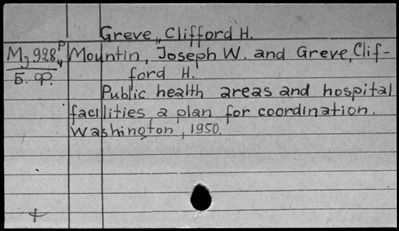 Greve, Clifford H.
Mз 928 P/4 Mountin, Joseph W. and Greve, Clif-
Б. ф. ford H.
Public health areas and hospital
facilities a plan for coordination.
Washington, 1950.